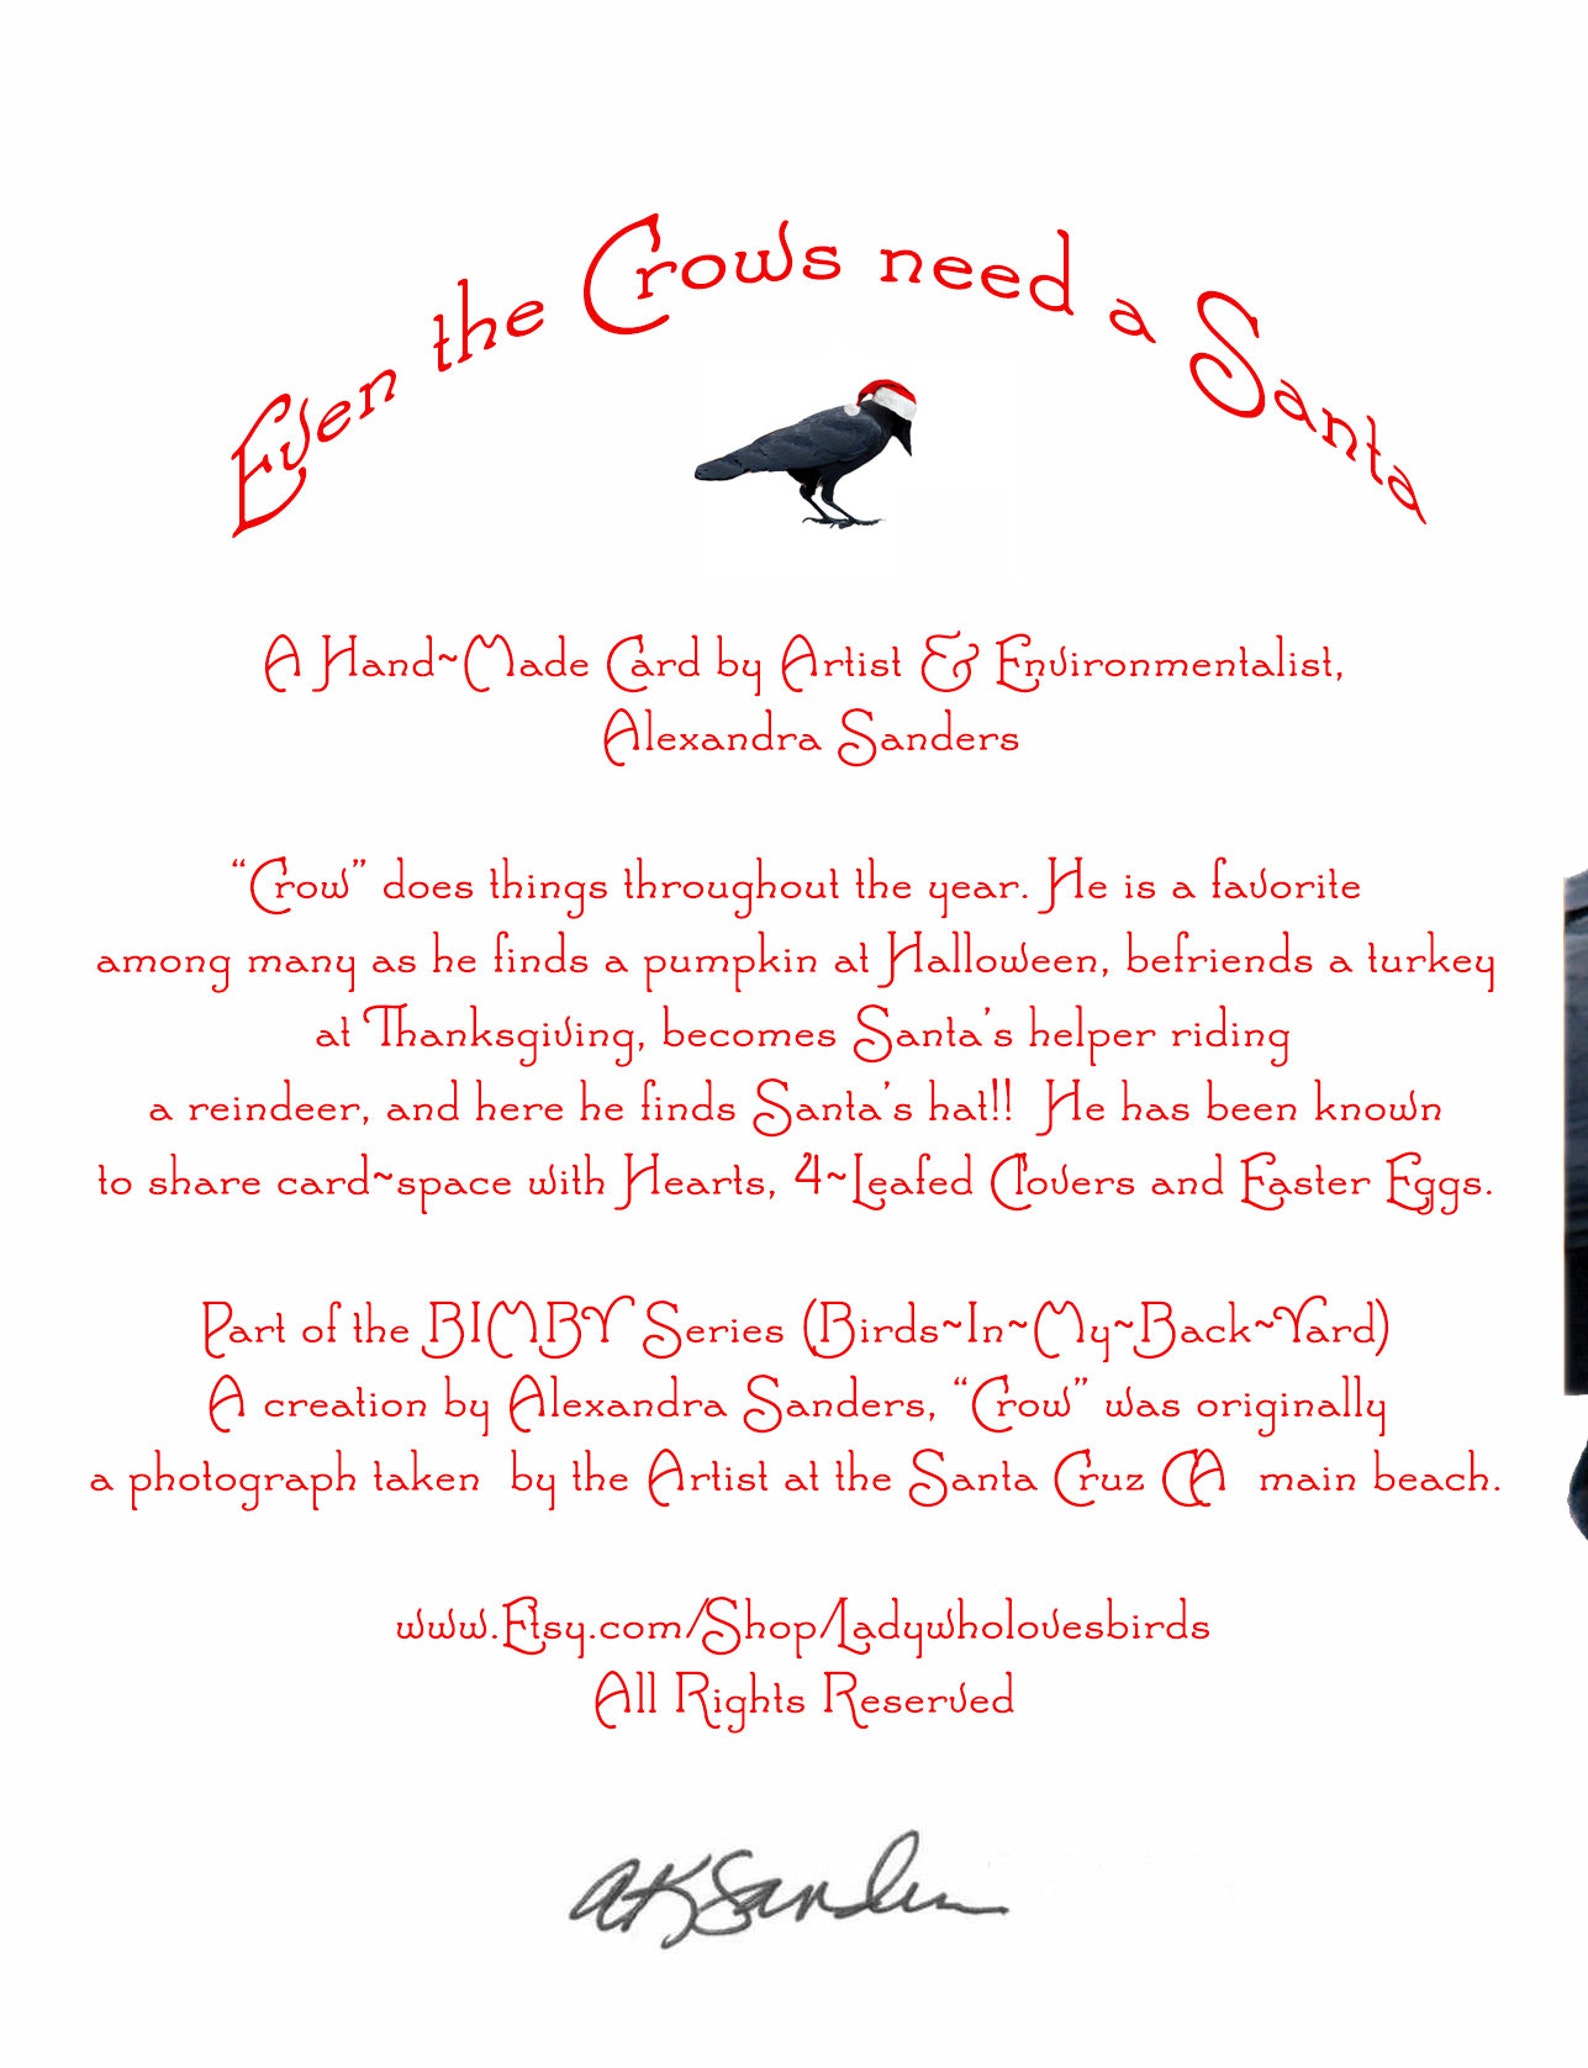 Even the Crows need a Santa
A Hand~Made Card by Artist & Environmentalist,
Alexandra Sanders
“Crow” does things throughout the year. He is a favorite
among many as he finds a pumpkin at Halloween, befriends a turkey
at Thanksgiving, becomes Santa’s helper riding
a reindeer, and here he finds Santa’s hat!! He has been known
to share card~space with Hearts, 4~Leafed Clovers and Easter Eggs.
Part of the BIMBY Series (Birds~In~My~Back~Yard)
A creation by Alexandra Sanders, “Crow” was originally
a photograph taken by the Artist at the Santa Cruz CA main beach.
www.Etsy.com/Shop/Ladywholovesbirds
All Rights Reserved
AKSanders